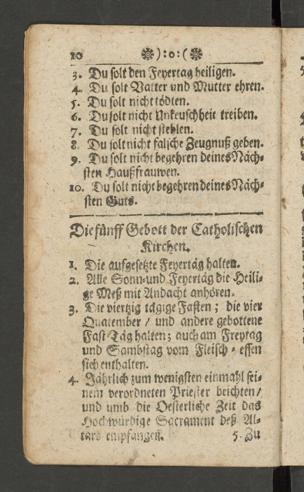 10 ❁):o:(❁
3. Du solt den Feyertag heiligen.
4. Du solt Vatter und Mutter ehren.
5. Du solt nicht tödten.
6. Du solt nicht Unkeuschheit treiben.
7. Du solt nicht stehlen.
8. Du solt nicht falsche Zeugnuß geben.
9. Du solt nicht begehren deines Näch-
sten Haußfrauwen.
10. Du solt nicht begehren deines Näch-
sten Guts.
Die fünff Gebott der Catholischen
Kirchen.
1. Die aufgesetzte Feyertäg halten.
2. Alle Sonn und Feyertäg die Heili-
ge Meß mit Andacht anhören.
3. Die viertzig tägige Fasten; die vier
Quatember / und andere gebottene
Fast-Täg halten; auch am Freytag
und Sambstag vom Fleisch-essen
sich enthalten.
4. Jährlich zum wenigsten einmahl sei-
nem verordneten Priester beichten/
und umb die Oesterliche Zeit das
Hochwürdige Sacrament deß Al-
tars empfangen.
5. Zu